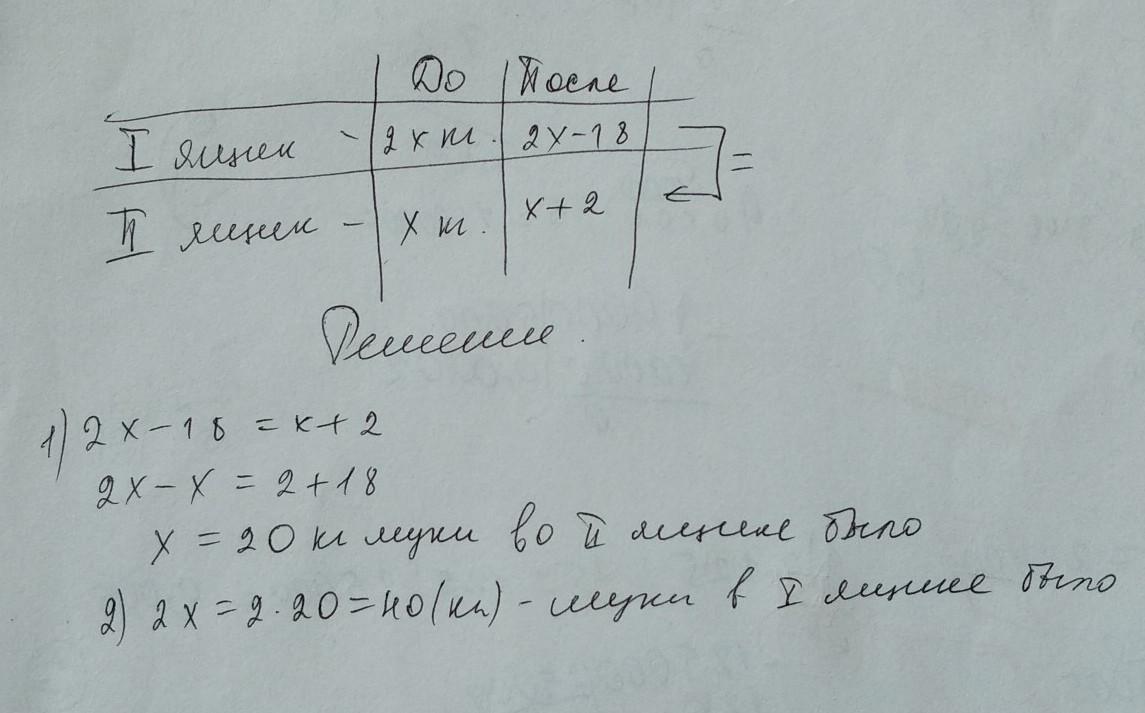 До После
I ящик - 2x кг. 2x-18
=
II ящик - x кг. x+2
Решение.
1) 2x-18 = x+2
2x-x = 2+18
x = 20 кг муки во II ящике было
2) 2x = 2·20=40(кг) - муки в I ящике было